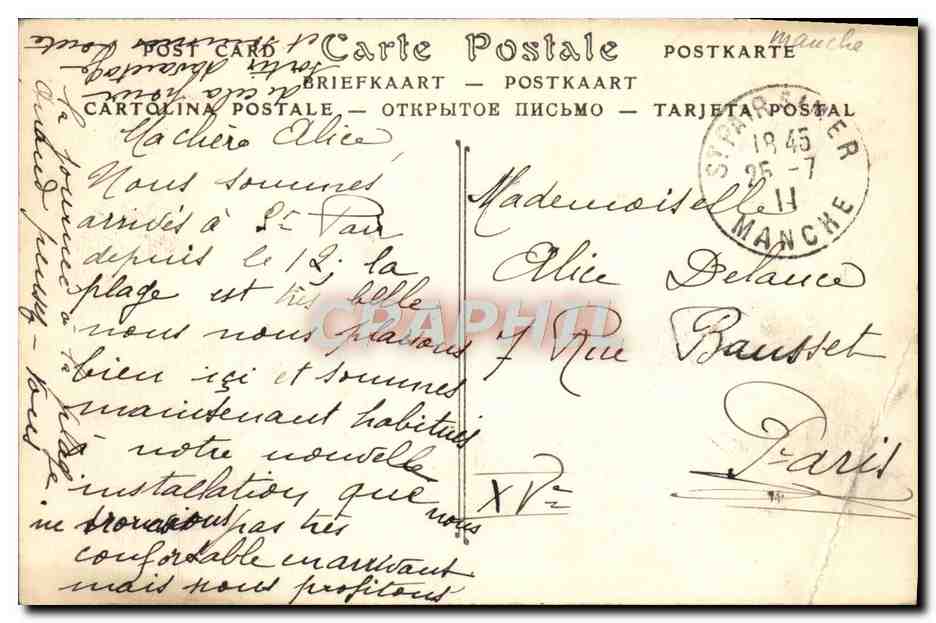 manche
POST CARD Carte Postale POSTKARTE
BRIEFKAART — POSTKAART
CARTOLINA POSTALE — ОТКРЫТОЕ ПИСЬМО — TARJETA POSTAL
ST PAIR-S-MER
18 45
25 -7
11
MANCHE
Ma chère Alice,
Nous sommes
arrivés à St Pair
depuis le 12; la
plage est très belle
nous nous plaisons
bien içi et sommes
maintenant habitués
à notre nouvelle
installation que nous
ne trouvions pas très
confortable en arrivant
mais nous profitons
la journée à la plage
quand pensez-vous
de cela pour
sortir davantage
et
Mademoiselle
Alice Delance
7 Rue Bausset
Paris
XVe
CPAPHIL